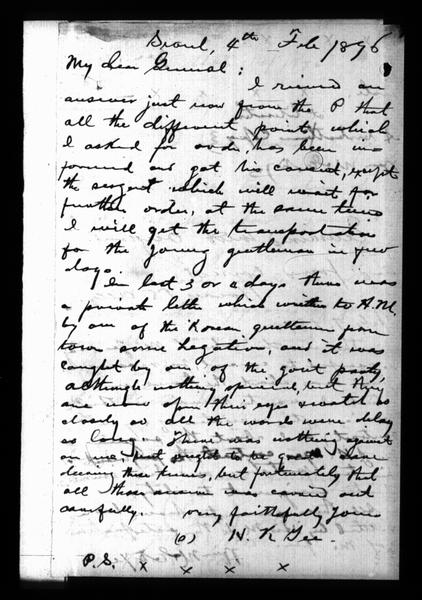 Seoul, 4th Feb 1896
My dear General:
I received an
answer just now from the P that
all the different points which
I asked for order, has been in
formed and got his consent, except
the sergent which will wait for
further order, at the same time
I will get the transportation
for the young gentleman in few
days.
In last 3 or 4 days there was
a private letter which written to H.M.
by one of the Korean gentlemen from
town some legation, and it was
caught by one of the gov't party,
although nothing opened, but they
are now open their eyes & watch so
closely so all the words were delay
so long. There was nothing against
on me but ought to be
these times, but fortunately that
all those was carried out
carefully. Very faithfully yours
(s) H. K. Gee.
P.S. x x x x